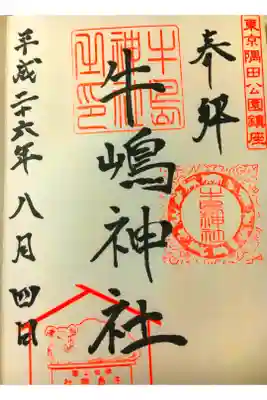 東京隅田公園鎮座
奉拝
牛嶋神社
平成二十六年八月四日
牛島神社之印